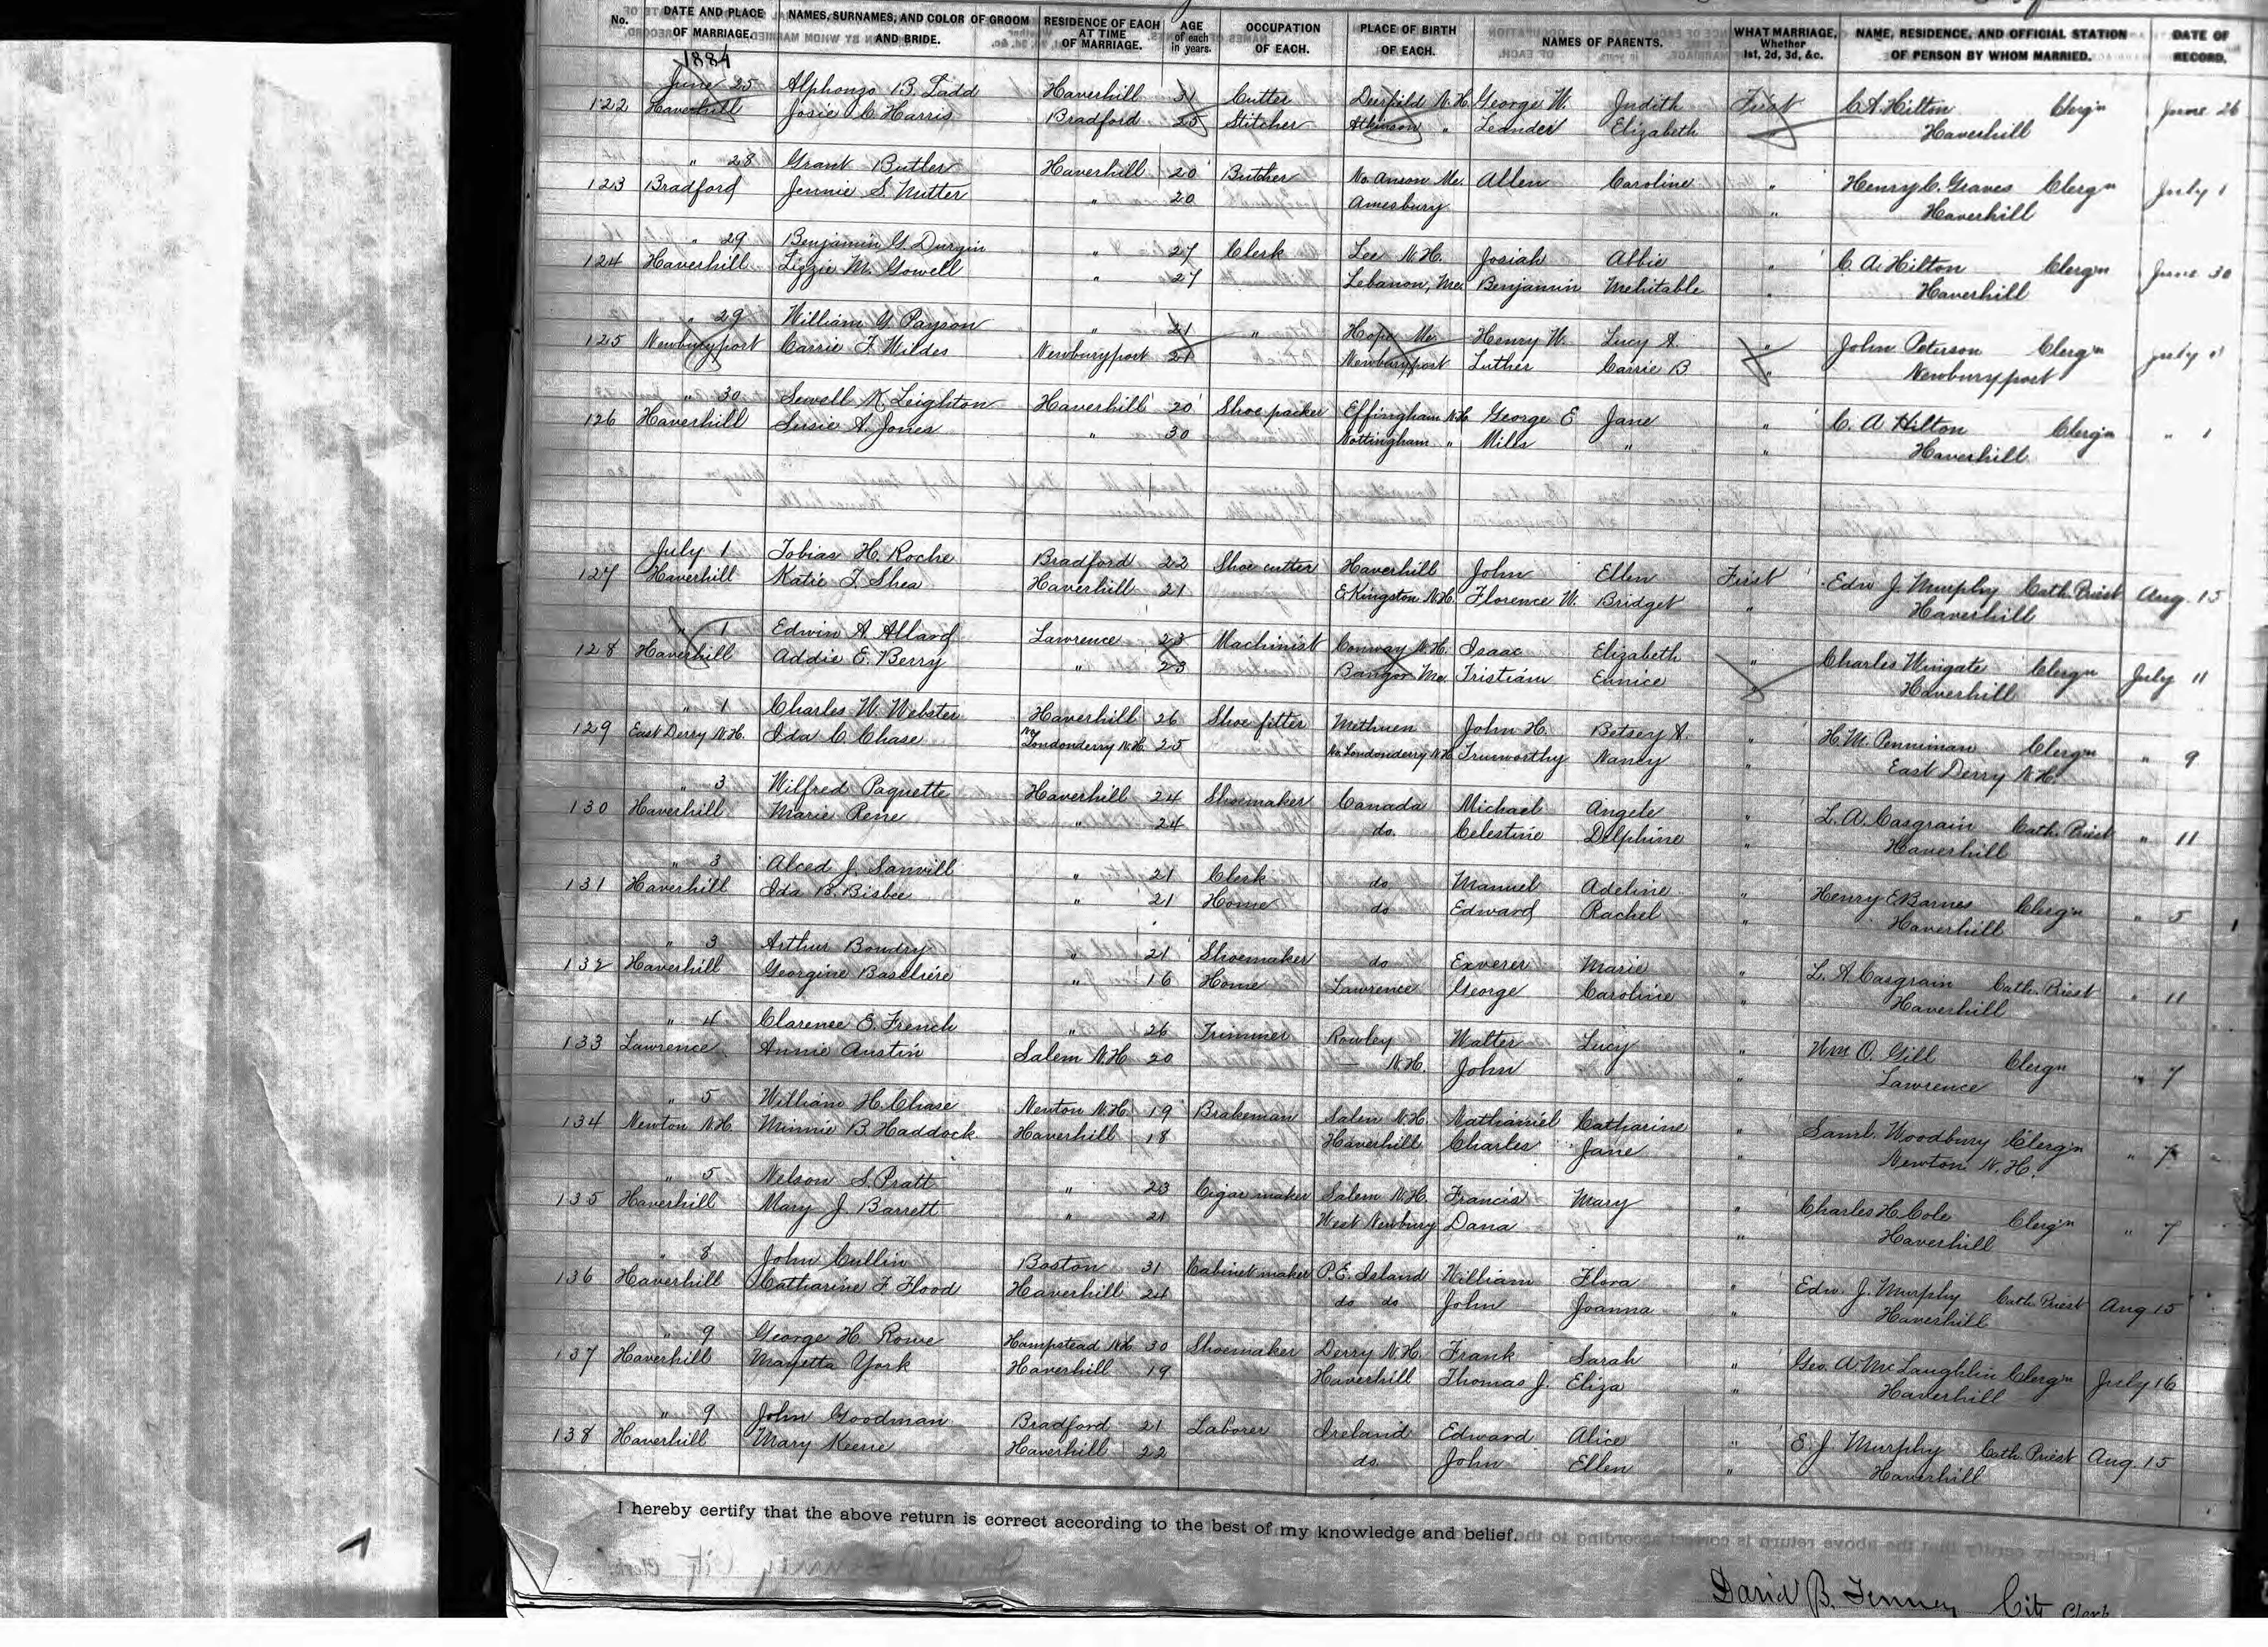 No. DATE AND PLACE OF MARRIAGE. NAMES, SURNAMES, AND COLOR OF GROOM AND BRIDE. RESIDENCE OF EACH AT TIME OF MARRIAGE. AGE of each in years. OCCUPATION OF EACH. PLACE OF BIRTH OF EACH. NAMES OF PARENTS. WHAT MARRIAGE, Whether 1st, 2d, 3d, &c. NAME, RESIDENCE, AND OFFICIAL STATION OF PERSON BY WHOM MARRIED. DATE OF RECORD.
1884
June 25 Alphonzo B. Ladd Haverhill 31 Cutter Deerfield N.H. George W. Judith First C. A. Hilton Clergn June 26
122 Haverhill Josie C. Harris Bradford 25 Stitcher Atkinson " Leander Elizabeth " Haverhill
" 28 Grant Butler Haverhill 20 Butcher No. Anson Me. Allen Caroline " Henry C. Graves Clergn July 1
123 Bradford Jennie S. Nutter " 20 Amesbury " Haverhill
" 29 Benjamin G. Durgin " 27 Clerk Lee N.H. Josiah Abbie " C. A. Hilton Clergn June 30
124 Haverhill Lizzie M. Gowell " 27 Lebanon, Me. Benjamin Mehitable " Haverhill
" 29 William G. Payson " 21 " Hope Me. Henry W. Lucy A. " John Peterson Clergn July
125 Newburyport Carrie F. Wildes Newburyport 21 Newburyport Luther Carrie B. " Newburyport
" 30 Sewell K. Leighton Haverhill 20 Shoe packer Effingham N.H. George E Jane " C. A. Hilton Clergn " 1
126 Haverhill Susie A. Jones " 30 Nottingham " Miles " " Haverhill
July 1 Tobias H. Roche Bradford 22 Shoe cutter Haverhill John Ellen First Edw J. Murphy Cath. Priest Aug. 15
127 Haverhill Katie T. Shea Haverhill 21 E Kingston N.H. Florence W. Bridget " Haverhill
" 1 Edwin A. Allard Lawrence 23 Machinist Conway N.H. Isaac Elizabeth " Charles Wingate Clergn July 11
128 Haverhill Addie E. Berry " 23 Bangor Me. Tristian Eunice " Haverhill
" 1 Charles W. Webster Haverhill 26 Shoe fitter Methuen John H. Betsey A. " H. M. Penniman Clergn " 9
129 East Derry N.H. Ida C. Chase No Londonderry N.H. 25 No Londonderry N.H. Trueworthy Nancy " East Derry N.H.
" 3 Wilfred Paquette Haverhill 24 Shoemaker Canada Michael Angele " L. A. Casgrain Cath. Priest " 11
130 Haverhill Marie Rene " 24 do Celestine Delphine " Haverhill
" 3 Alced J. Sanvill " 21 Clerk do Manuel Adeline " Henry E Barnes Clergn " 5
131 Haverhill Ida B. Bisbee " 21 Home do Edward Rachel " Haverhill
" 3 Arthur Boudry " 21 Shoemaker do Exverer Marie " L. A. Casgrain Cath. Priest " 11
132 Haverhill Georgine Baseliere " 16 Home Lawrence George Caroline " Haverhill
" 4 Clarence E. French " 26 Trimmer Rowley Walter Lucy " Wm O. Gill Clergn " 7
133 Lawrence Annie Austin Salem N.H. 20 — N.H. John " Lawrence
" 5 William H. Chase Newton N.H. 19 Brakeman Salem N.H. Nathaniel Catharine " Saml. Woodbury Clergn " 7
134 Newton N.H. Minnie B. Haddock Haverhill 18 Haverhill Charles Jane " Newton N.H.
" 5 Nelson S. Pratt " 23 Cigar maker Salem N.H. Francis Mary " Charles H. Cole Clergn " 7
135 Haverhill Mary J. Barrett " 21 West Newbury Dana " Haverhill
" 8 John Cullin Boston 31 Cabinet maker P.E. Island William Flora " Edw. J. Murphy Cath. Priest Aug 15
136 Haverhill Catharine F. Flood Haverhill 24 do do John Joanna " Haverhill
" 9 George H. Rowe Hampstead N.H. 30 Shoemaker Derry N.H. Frank Sarah " Geo. A. McLaughlin Clergn July 16
137 Haverhill Mayetta York Haverhill 19 Haverhill Thomas J. Eliza " Haverhill
" 9 John Goodman Bradford 21 Laborer Ireland Edward Alice " E. J. Murphy Cath. Priest Aug. 15
138 Haverhill Mary Keene Haverhill 22 do John Ellen " Haverhill
I hereby certify that the above return is correct according to the best of my knowledge and belief.
David B. Tenney City Clerk